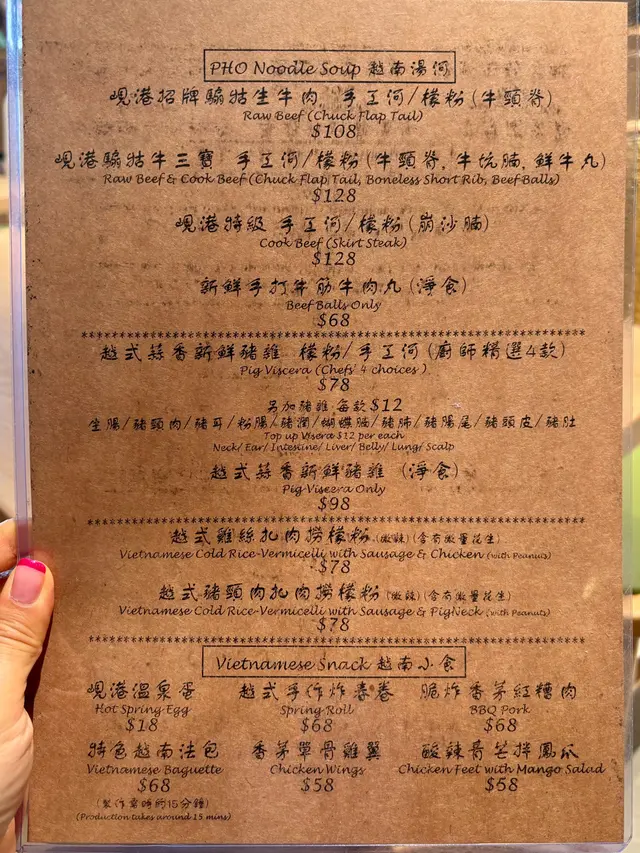 PHO Noodle Soup 越南湯河
峴港招牌騸牯生牛肉 手工河/檬粉(牛頸脊)
Raw Beef (Chuck Flap Tail)
$108
峴港騸牯牛三寶 手工河/檬粉(牛頸脊、牛坑腩、鮮牛丸)
Raw Beef & Cook Beef (Chuck Flap Tail, Boneless Short Rib, Beef Balls)
$128
峴港特級 手工河/檬粉(崩沙腩)
Cook Beef (Skirt Steak)
$128
新鮮手打牛筋牛肉丸(淨食)
Beef Balls Only
$68
越式蒜香新鮮豬雜 檬粉/手工河(廚師精選4款)
Pig Viscera (Chefs' 4 choices)
$78
另加豬雜每款$12
生腸/豬頸肉/豬耳/粉腸/豬潤/蝴蝶腩/豬肺/豬腸尾/豬頭皮/豬肚
Top up Visera $12 per each
Neck/ Ear/ Intestine/ Liver/ Belly/ Lung/ Scalp
越式蒜香新鮮豬雜 (淨食)
Pig Viscera Only
$98
越式雞絲扎肉撈檬粉(微辣)(含有微量花生)
Vietnamese Cold Rice-Vermicelli with Sausage & Chicken (with Peanuts)
$78
越式豬頸肉扎肉撈檬粉(微辣)(含有微量花生)
Vietnamese Cold Rice-Vermicelli with Sausage & PigNeck (with Peanuts)
$78
Vietnamese Snack 越南小食
峴港溫泉蛋 越式手作炸春卷 脆炸香茅紅糟肉
Hot Spring Egg Spring Roll BBQ Pork
$18 $68 $68
特色越南法包 香茅單骨雞翼 酸辣青芒拌鳳爪
Vietnamese Baguette Chicken Wings Chicken Feet with Mango Salad
$68 $58 $58
(製作需時約15分鐘)
(Production takes around 15 mins)